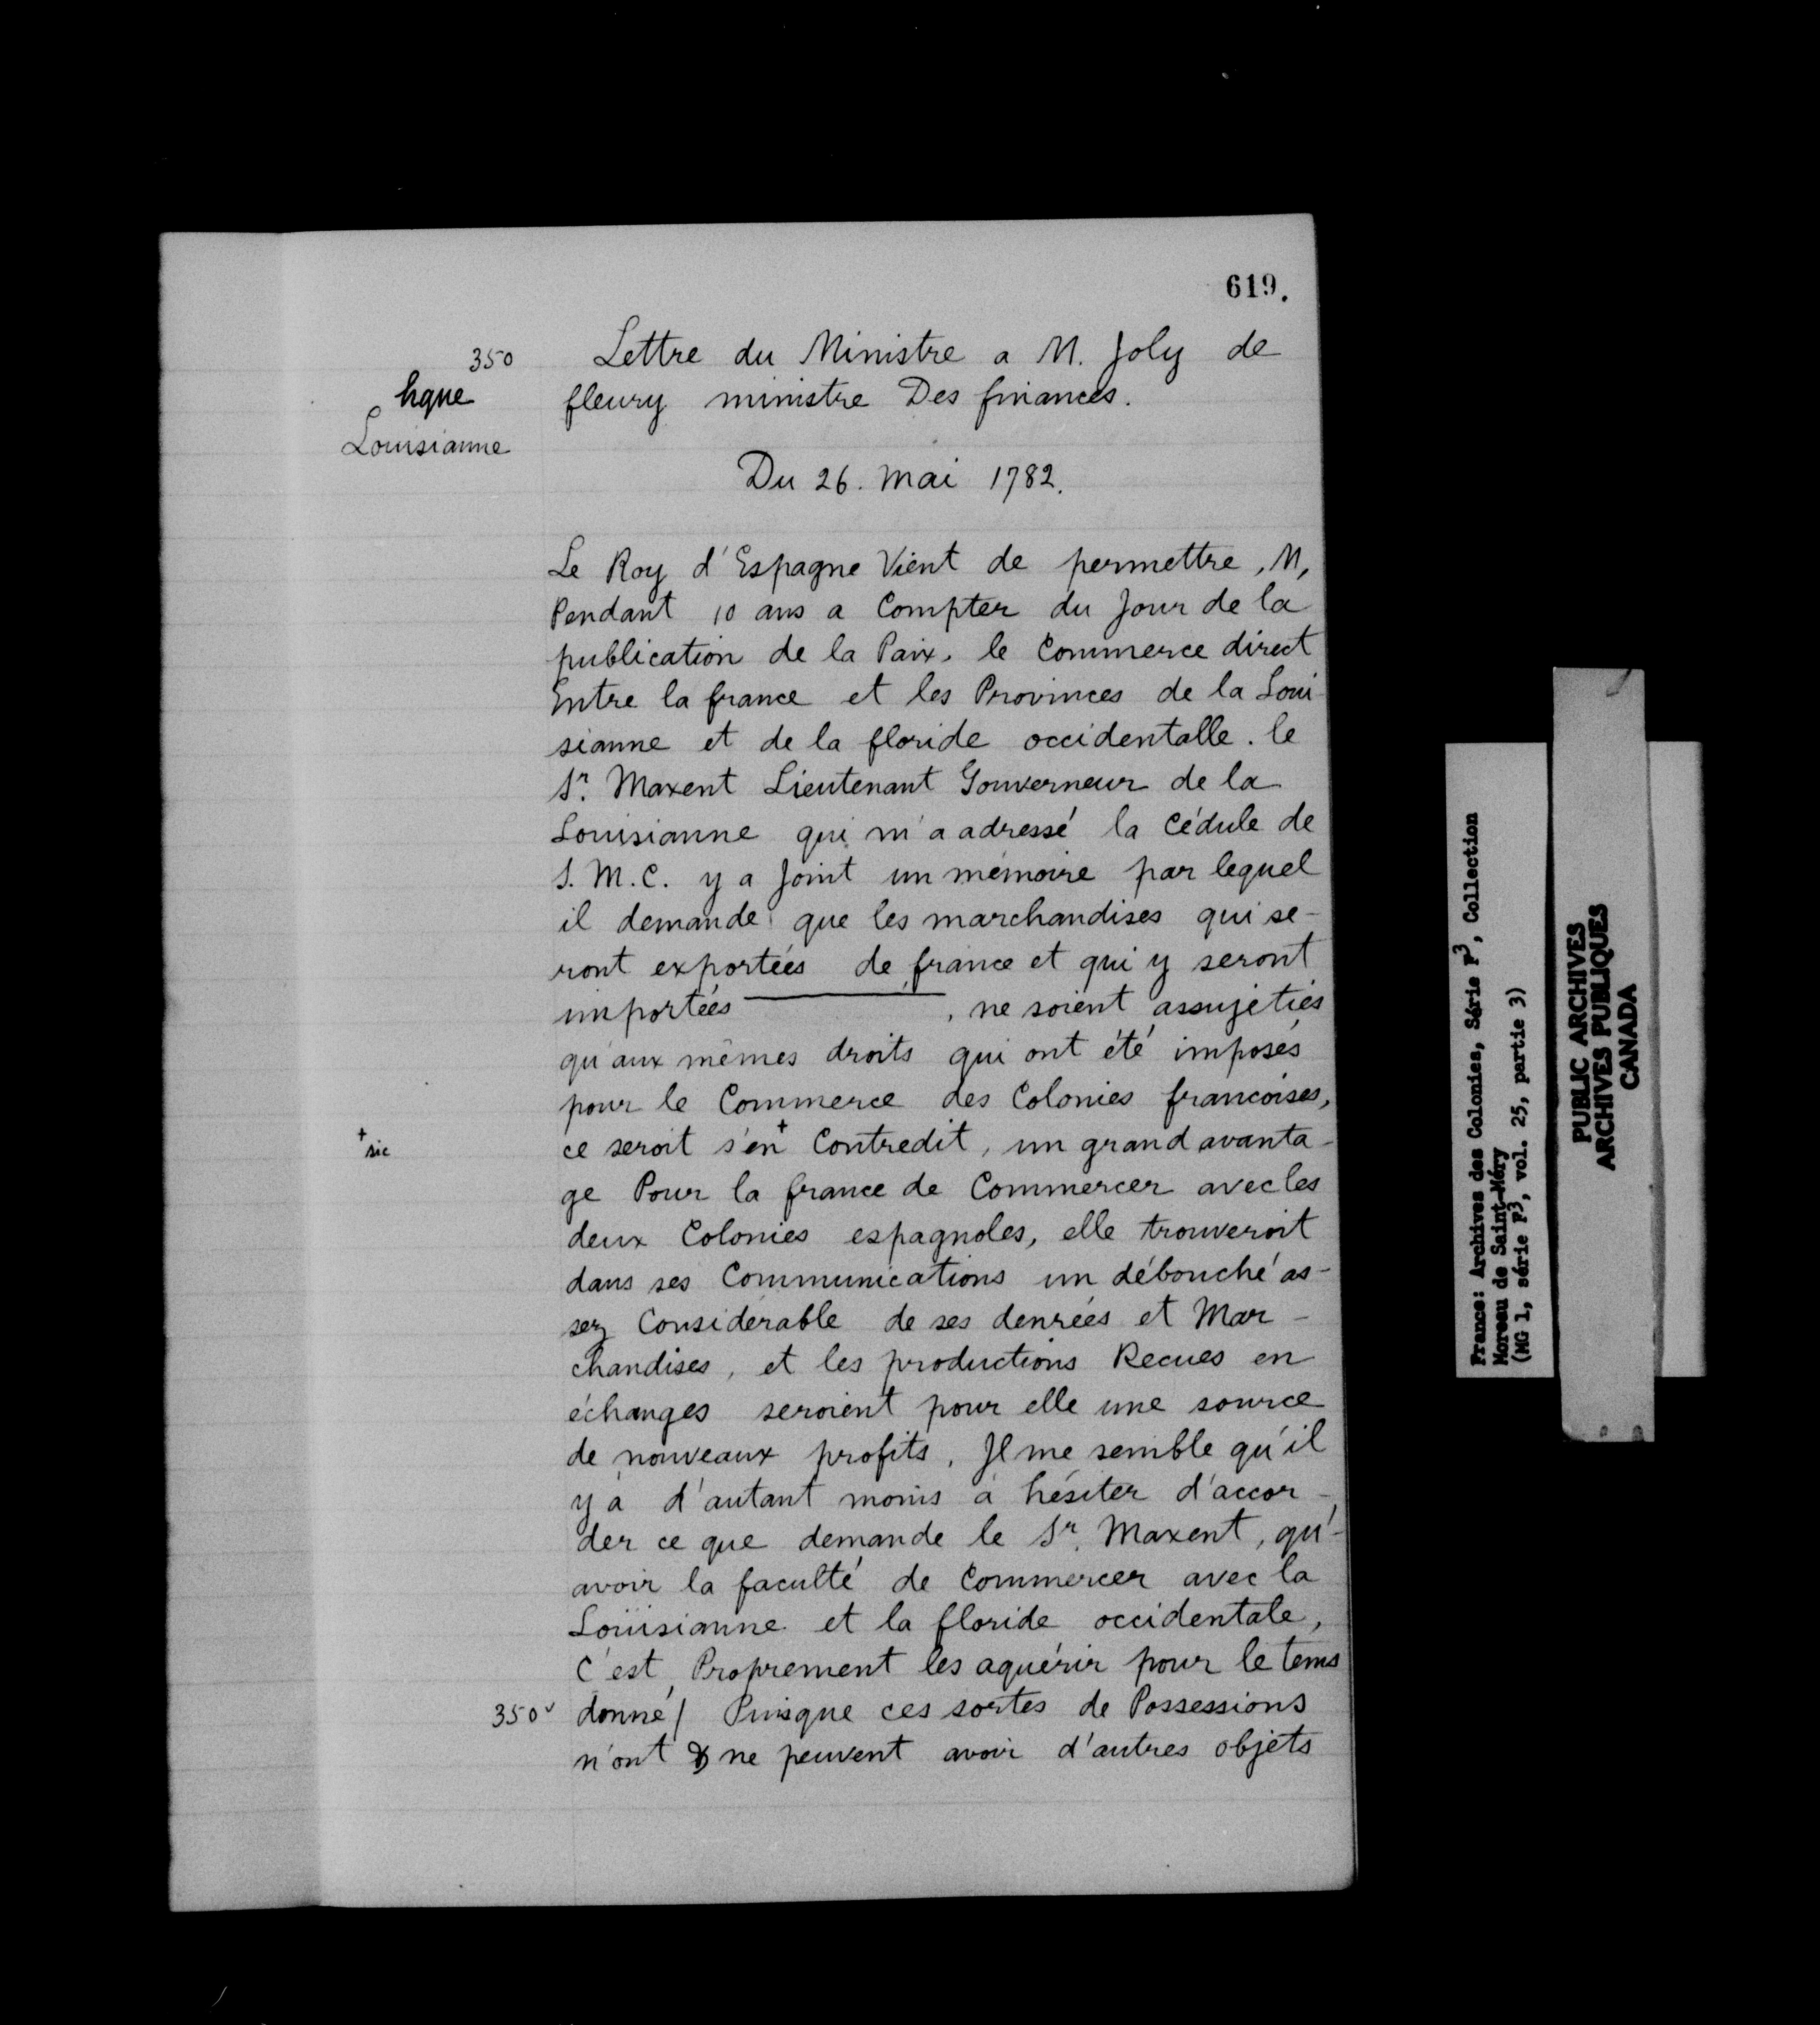 619.
350
hque
Louisianne
Lettre du Ministre a M. Joly de
fleury ministre Des finances.
Du 26. Mai 1782.
Le Roy d'Espagne Vient de permettre, M,
Pendant 10 ans a Compter du Jour de la
publication de la Paix, le Commerce direct
Entre la france et les Provinces de la Loui-
sianne et de la floride occidentalle. le
Sr. Maxent Lieutenant Gouverneur de la
Louisianne qui m'a adressé la Cédule de
S. M. C. y a Joint un mémoire par lequel
il demande que les marchandises qui se-
ront exportées de france et qui y seront
importées ——— , ne soient assujéties
qu'aux mêmes droits qui ont été imposés
pour le Commerce des Colonies francoises,
+ sic
ce seroit s'en+ Contredit, un grand avanta-
ge Pour la france de Commercer avec les
deux Colonies espagnoles, elle trouveroit
dans ses Communications un débouché as-
sez Considérable de ses denrées et Mar-
chandises, et les productions Recues en
échanges seroient pour elle une source
de nouveaux profits. Il me semble qu'il
y à d'autant moins à hésiter d'accor-
der ce que demande le Sr. Maxent, qu'-
avoir la faculté de Commercer avec la
Louisianne et la floride occidentale,
C'est Proprement les aquérir pour le tems
350v
donné/ Puisque ces sortes de Possessions
n'ont & ne peuvent avoir d'autres objets
France: Archives des Colonies, Série F3, Collection
Moreau de Saint-Méry
(MG 1, série F3, vol. 25, partie 3)
PUBLIC ARCHIVES
ARCHIVES PUBLIQUES
CANADA